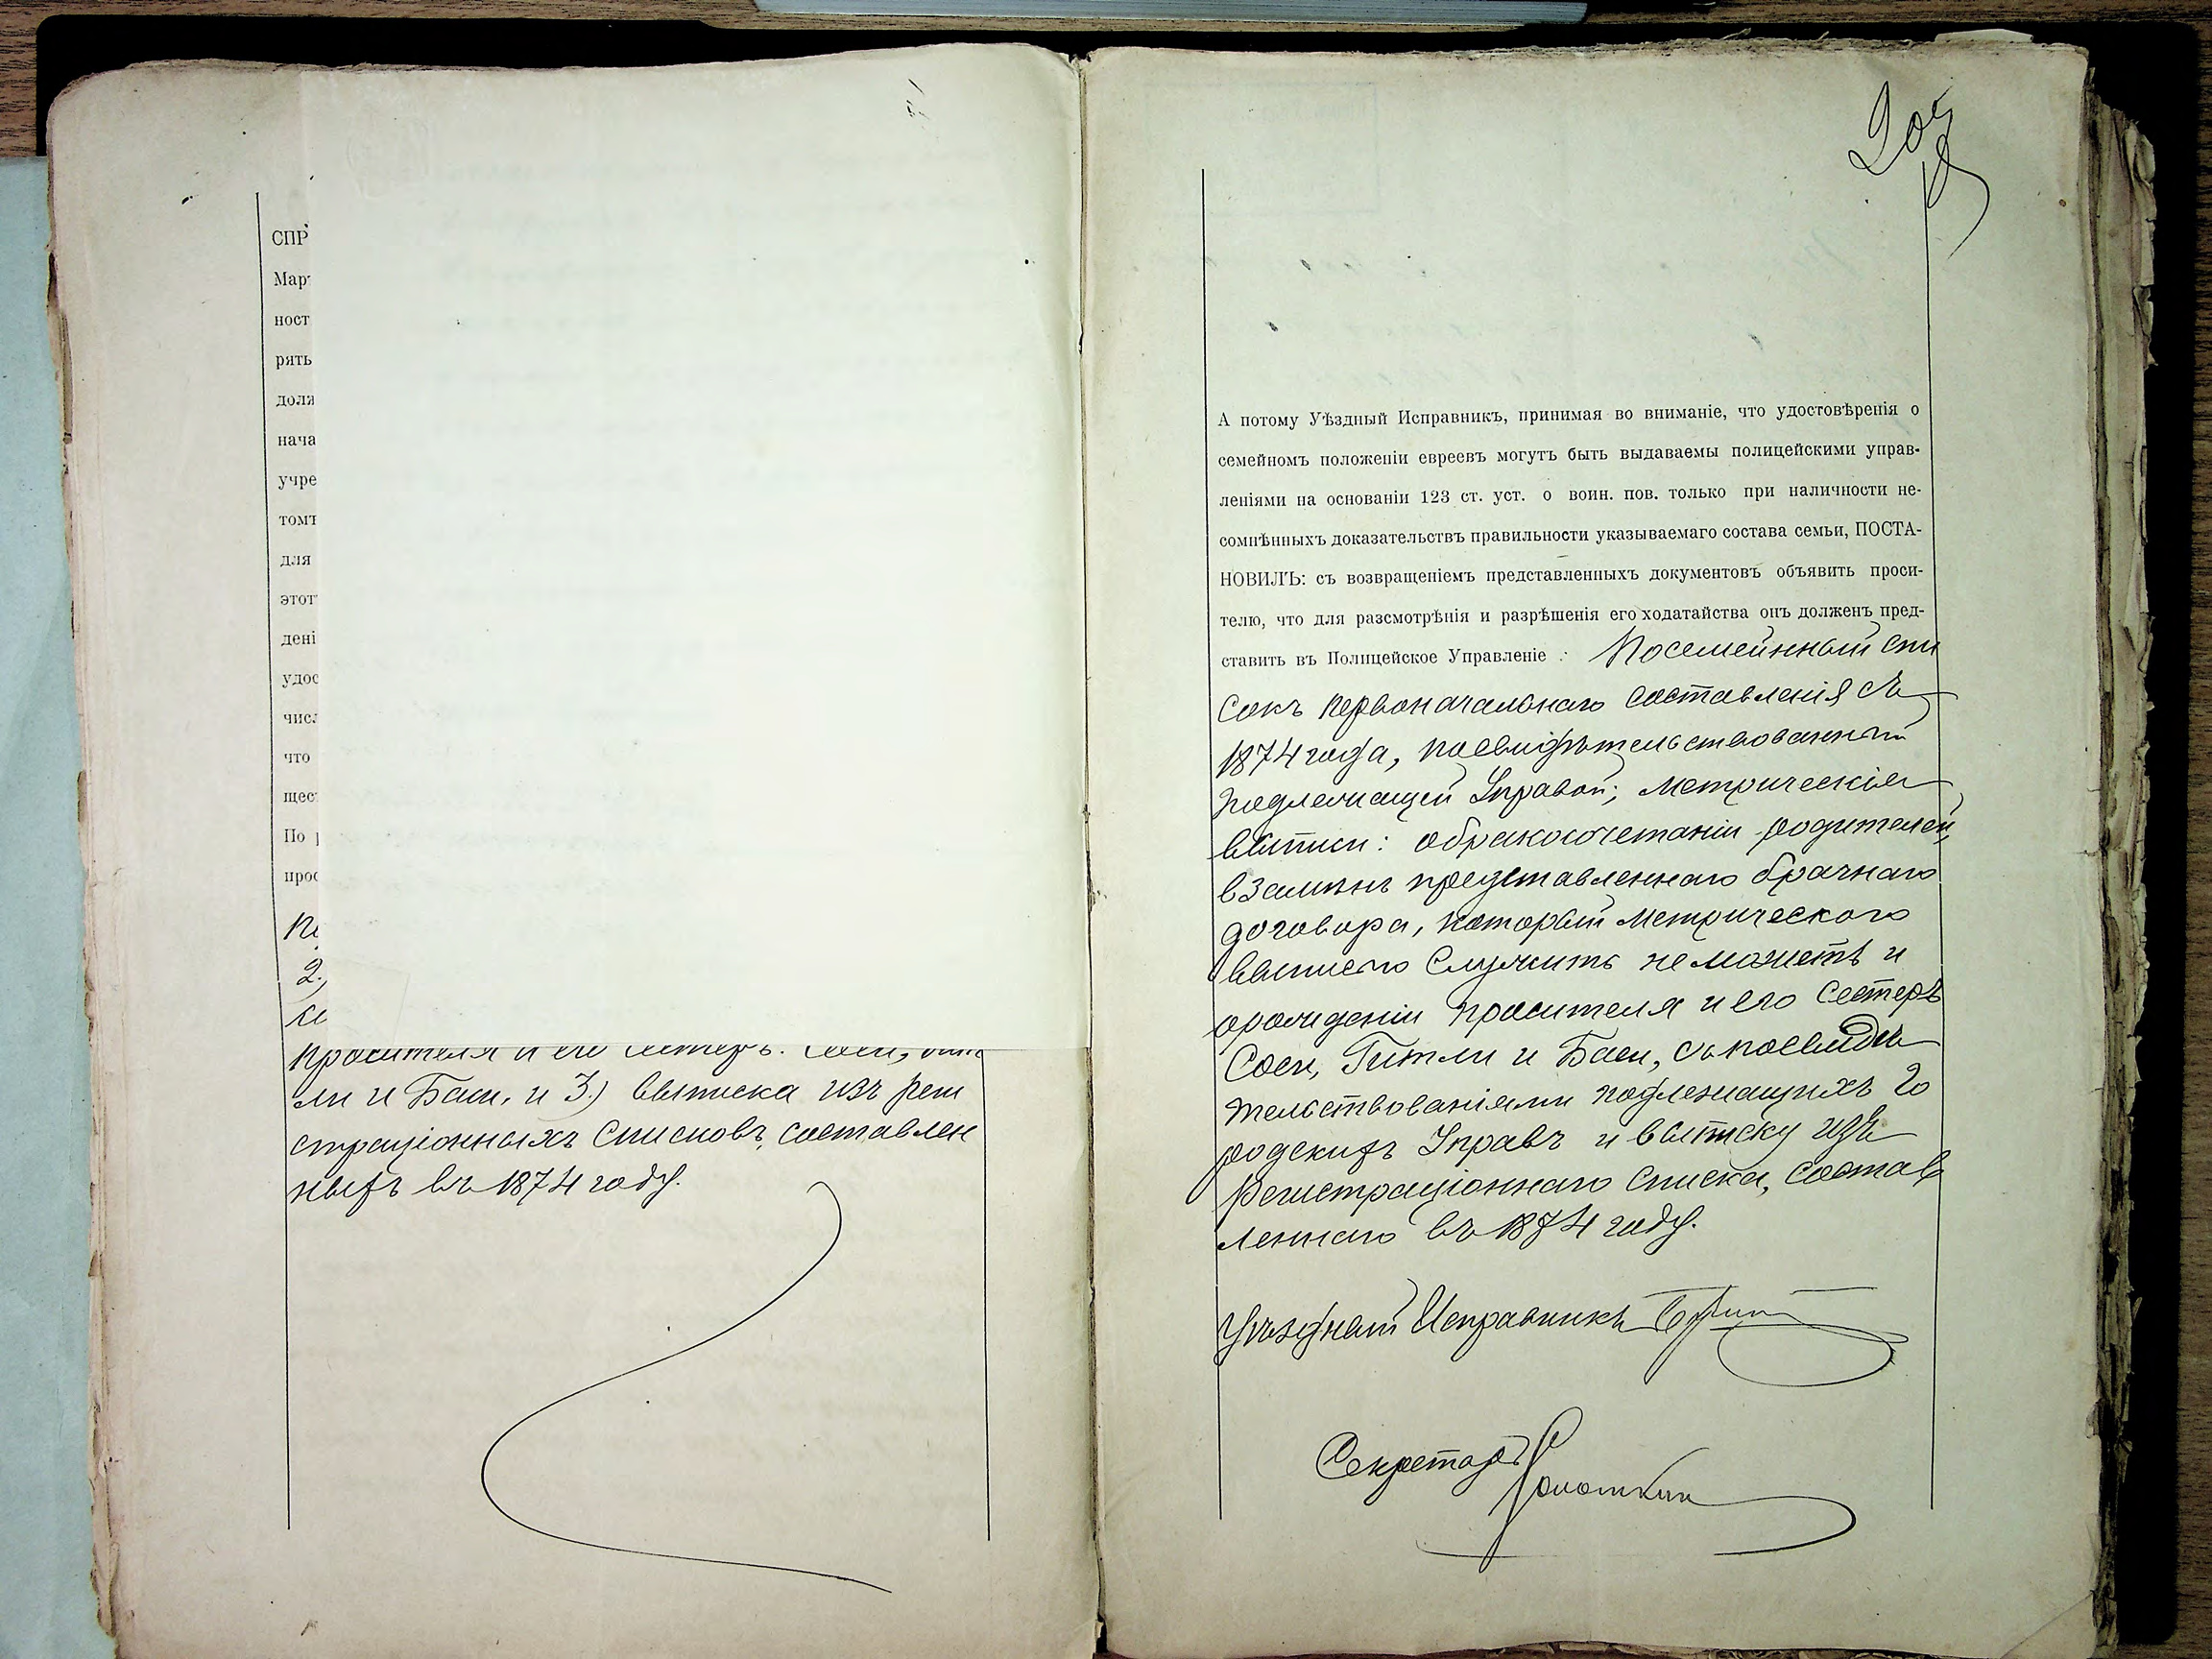 СПР
Мар
ност
рять
долж
нача
учре
томъ
для
этот
дені
удос
числ
что
щес
По
прос
2.)
просителя и его сестеръ: Соси, Гит
ли и Баси, и 3.) выписка изъ реги
страціонныхъ списковъ, составлен
ныхъ въ 1874 году.
А потому Уѣздный Исправникъ, принимая во вниманіе, что удостовѣренія о
семейномъ положеніи евреевъ могутъ быть выдаваемы полицейскими управ-
леніями на основаніи 123 ст. уст. о воин. пов. только при наличности не-
сомнѣнныхъ доказательствъ правильности указываемаго состава семьи, ПОСТА-
НОВИЛЪ: съ возвращеніемъ представленныхъ документовъ объявить проси-
телю, что для разсмотрѣнія и разрѣшенія его ходатайства онъ долженъ пред-
ставить въ Полицейское Управленіе: Посемейный спи
сокъ первоначальнаго составленія съ
1874 года, посвидѣтельствованный
подлежащей Управой; метрическія
выписи: о бракосочетаніи родителей,
взамѣнъ представленнаго брачнаго
договора, который метрического
выписью служить не можетъ и
о рожденіи просителя и его сестеръ
Соси, Гитли и Баси, съ посвидѣ
тельствованіями подлежащихъ Го
родскихъ Управъ и выписку изъ
регистраціоннаго списка, состав
леннаго въ 1874 году.
Уѣздный Исправникъ
Секретарь